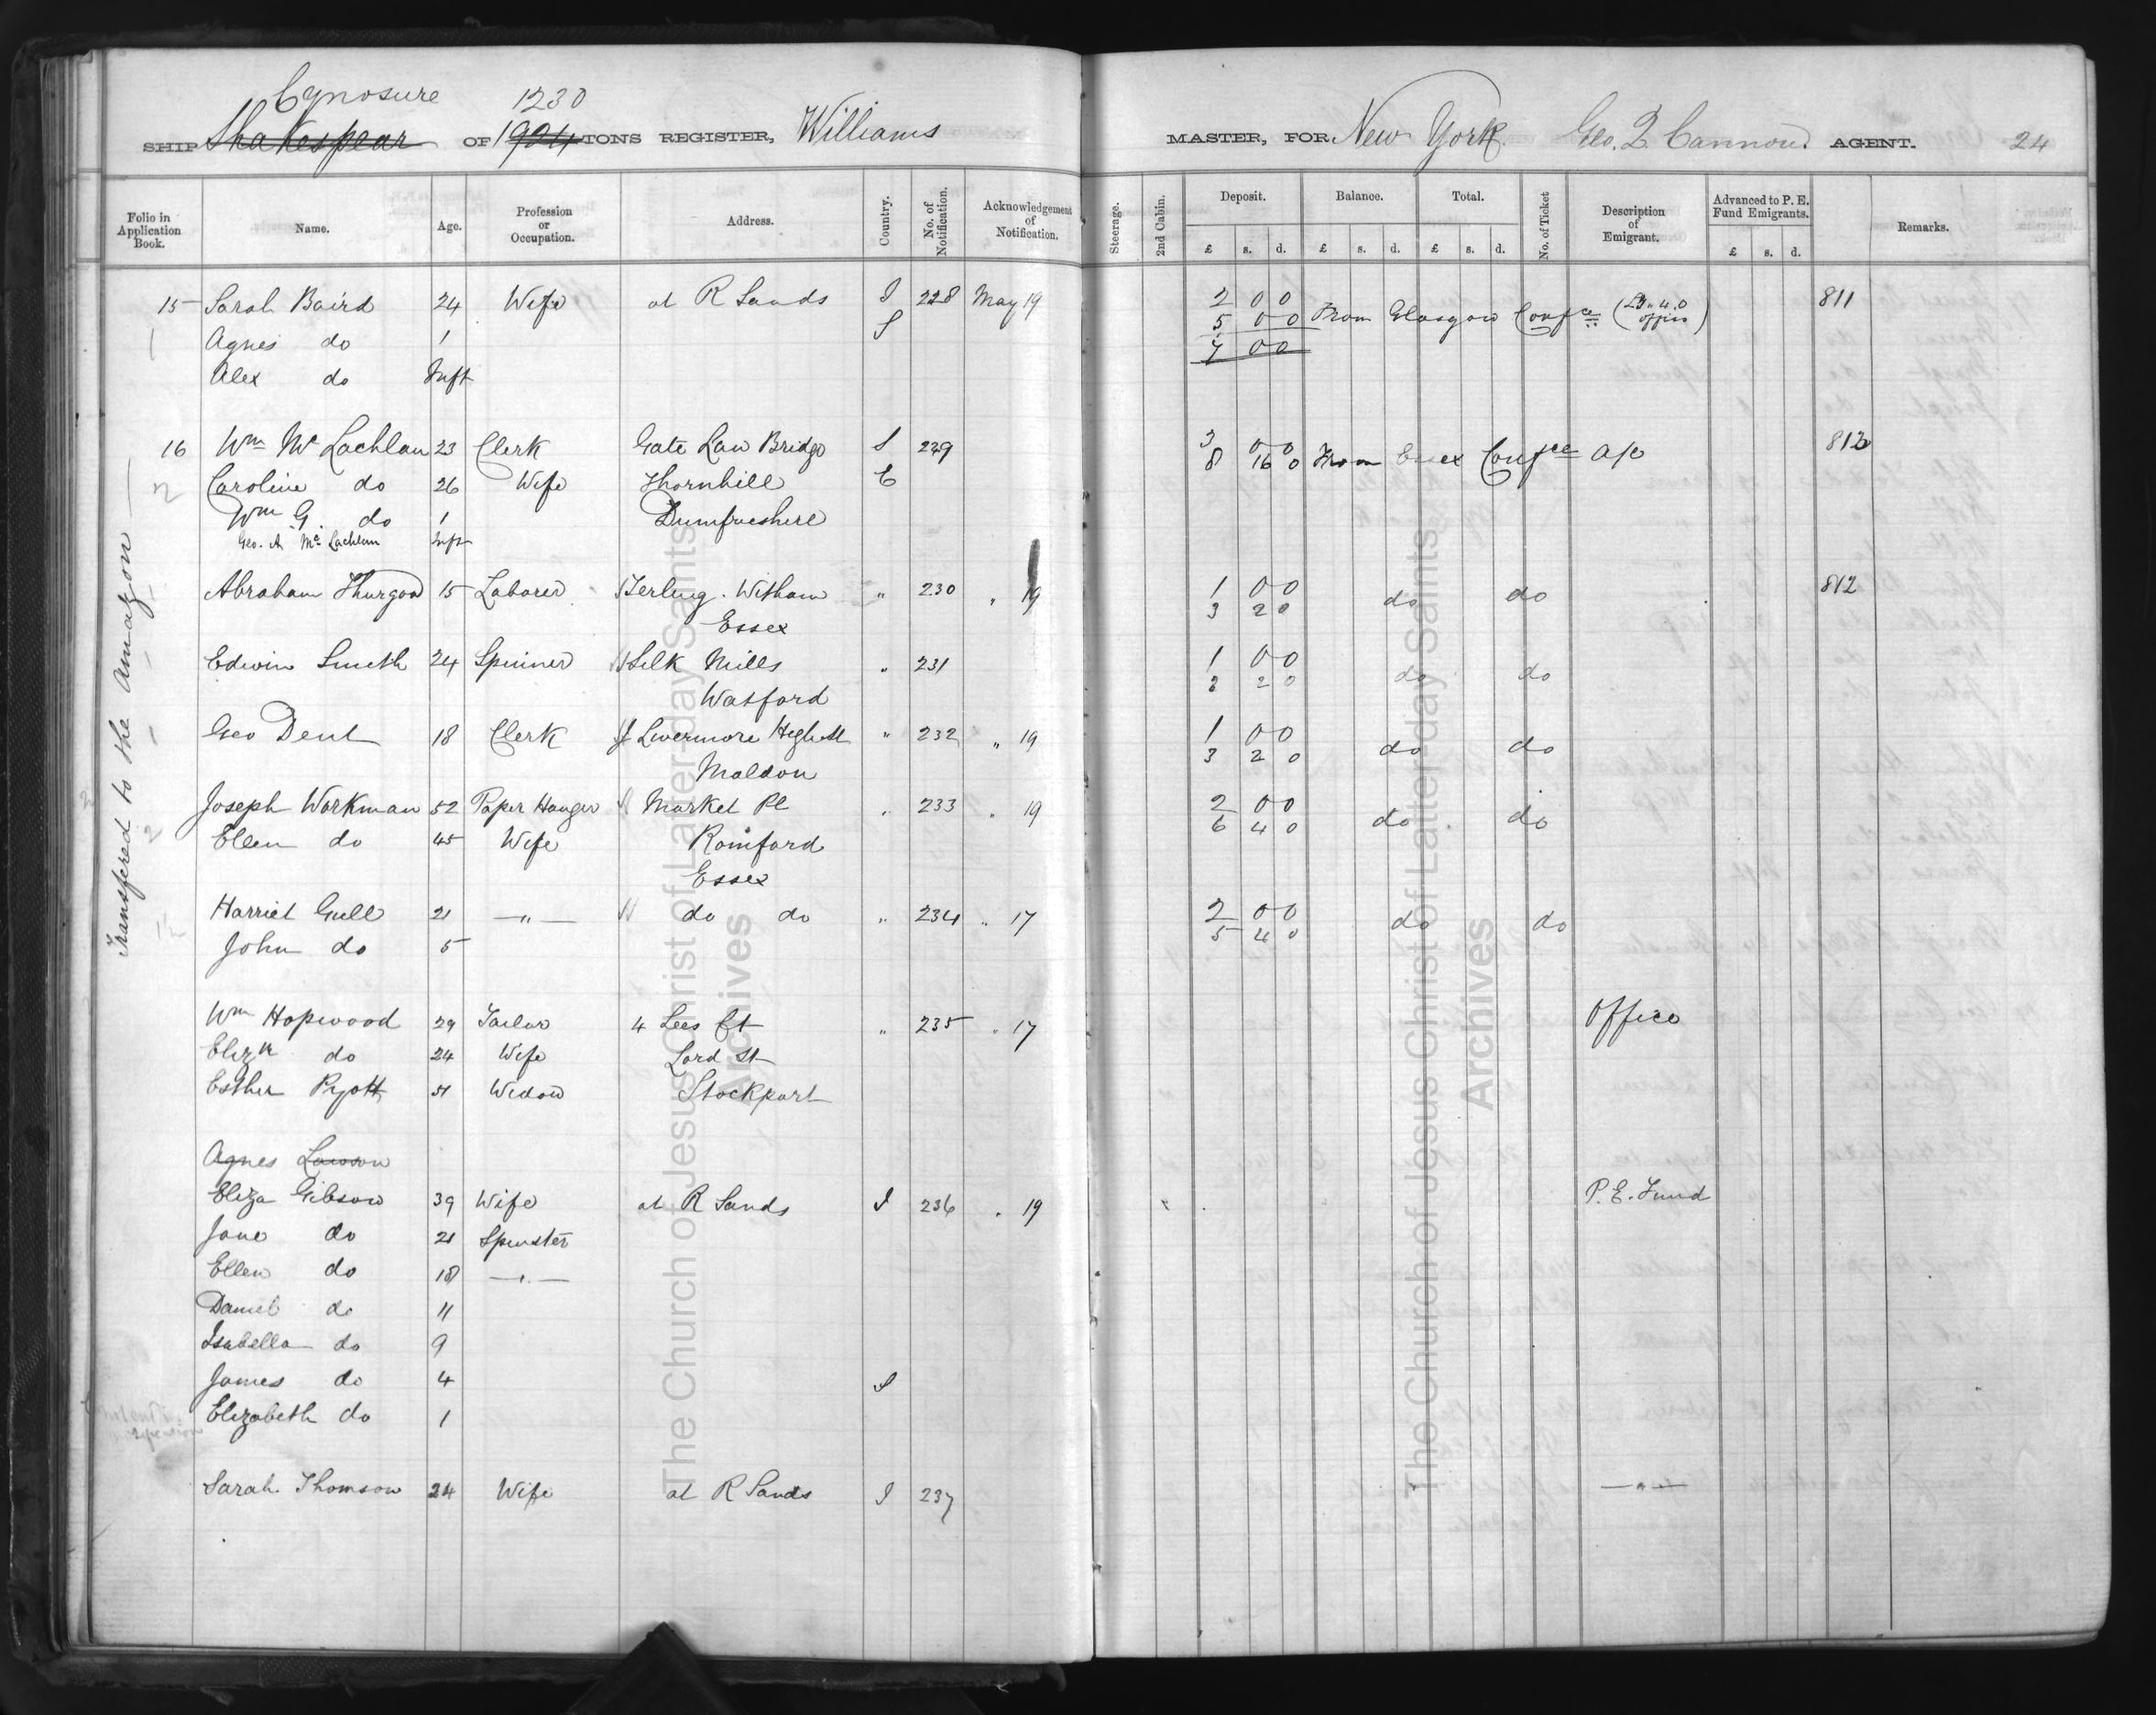 Cynosure 1230
SHIP Shakespear OF 1924 TONS REGISTER, Williams MASTER, FOR New York. Geo. Q. Cannon. AGENT. 24
Folio in Application Book. Name. Age. Profession or Occupation. Address. Country. No. of Notification. Acknowledgement of Notification. Steerage. 2nd Cabin. Deposit. Balance. Total. No. of Ticket Description of Emigrant. Advanced to P. E. Fund Emigrants. Remarks.
£ s. d. £ s. d. £ s. d. £ s. d.
15 Sarah Baird 24 Wife at R Sands I 228 May 19 2 0 0 811
S 5 0 0 From Glasgow Confce
1 Agnes do 1 7 0 0
Alex do Inft
16 Wm Mc Lachlan 23 Clerk Gate Law Bridge S 229 3 0 0 812
8 16 0 From Essex Confce a/c
2 Caroline do 26 Wife Thornhill E
Wm G. do 1 Dumfrieshire
Geo. A. Mc Lachlan Inft
Transfered to the Amazon
Abraham Thurgood 15 Laborer Terling. Witham " 230 " 19 1 0 0 812
Essex 3 2 0 do do
Edwin Smith 24 Spinner Silk Mills " 231 1 0 0
Watford 3 2 0 do do
Geo Dent 18 Clerk Livermore High St " 232 " 19 1 0 0
Maldon 3 2 0 do do
Joseph Workman 52 Paper Hanger Market Pl " 233 " 19 2 0 0
2 Ellen do 45 Wife Romford 6 4 0 do do
Essex
Harriet Gull 21 — " — do do " 234 " 17 2 0 0
John do 5 5 4 0 do do
Wm Hopwood 29 Tailor 4 Lees Ct " 235 " 17 Office
Elizth do 24 Wife Lord St
Esther Pyott 51 Widow Stockport
Agnes Lawson
Eliza Gibson 39 Wife at R Sands I 236 " 19 P. E. Fund
Jane do 21 Spinster
Ellen do 18 — " —
Daniel do 11
Isabella do 9
James do 4 S
Elizabeth do 1
Sarah Thomson 24 Wife at R Sands I 237 — " —
The Church of Jesus Christ of Latter-day Saints
Archives
The Church of Jesus Christ of Latter-day Saints
Archives